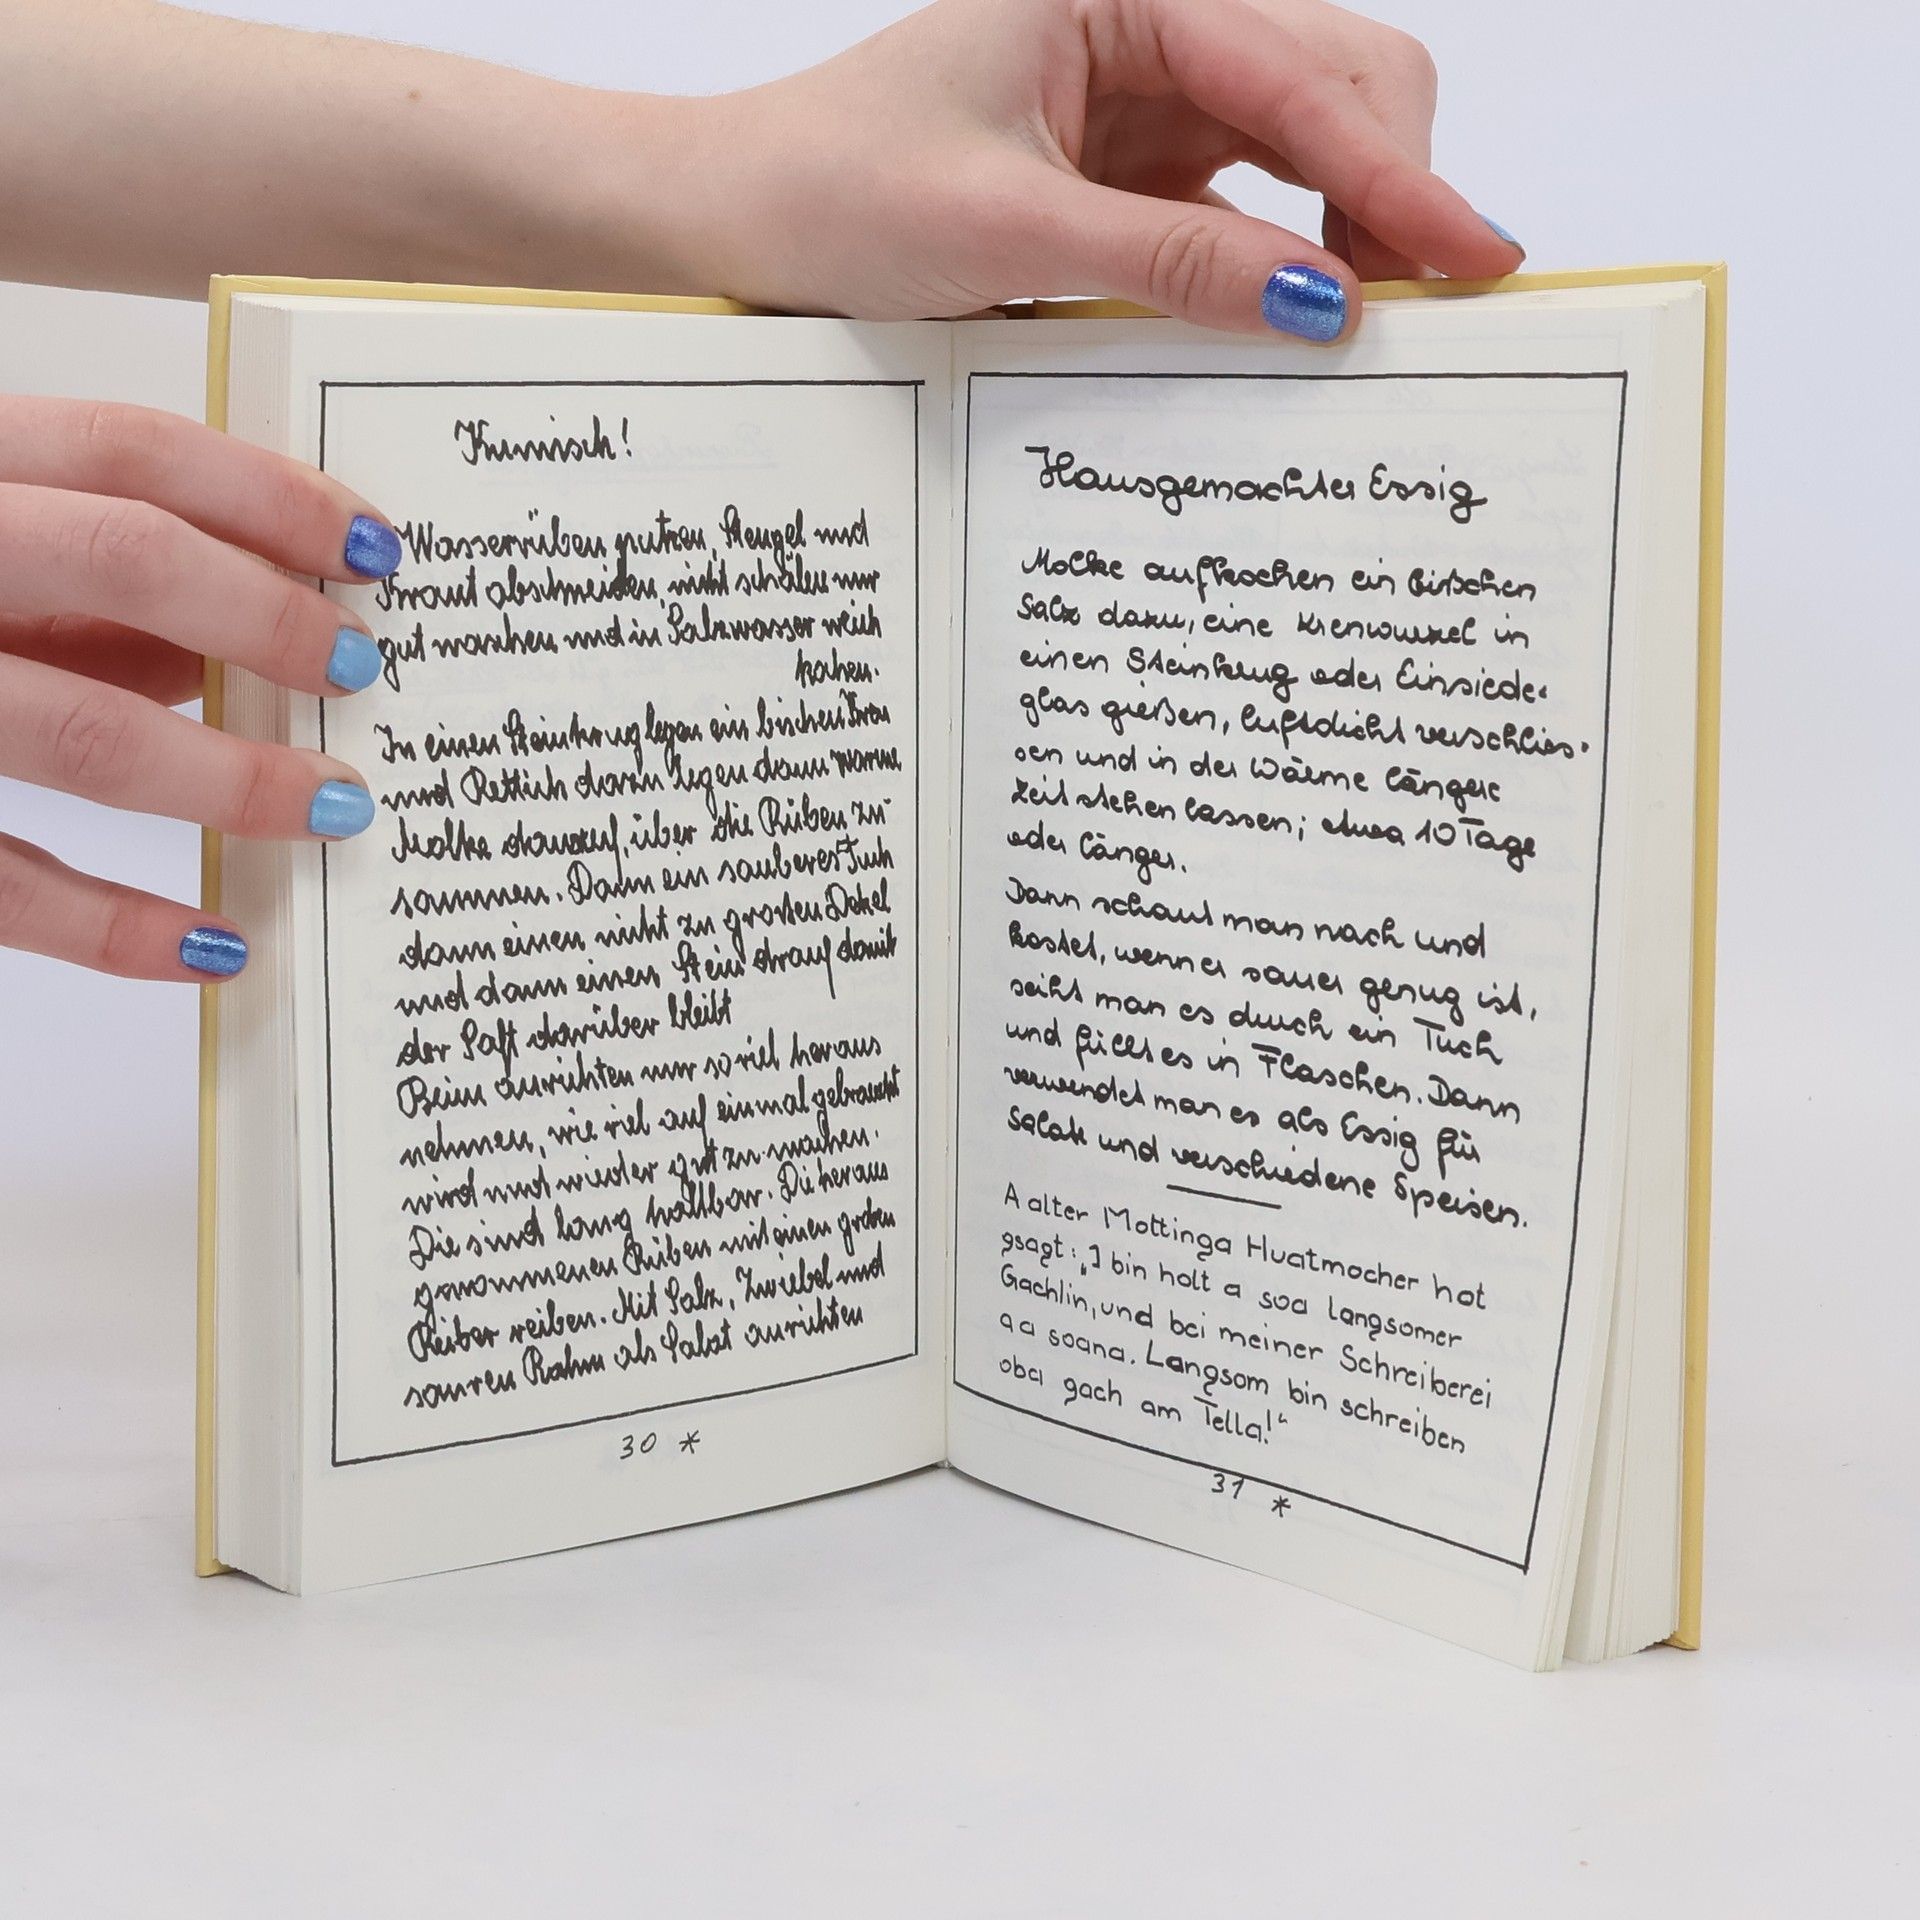 Kumisch!
Wasserrüben putzen, Stengel und
Kraut abschneiden, nicht schälen nur
gut waschen und in Salzwasser weich
kohen.
In einen Steinkrug legen ein bischen Kren
und Rettich dazu legen dann warme
Molke darauf, über die Rüben zu
sammen. Dann ein sauberes Tuch
dann einen nicht zu großen Dekel
und dann einen Stein drauf damit
der Saft darüber bleibt
Beim anrichten nur so viel heraus
nehmen, wie viel auf einmal gebraucht
wird und wieder gut zu machen.
Die sind lang haltbar. Die heraus
genommenen Rüben mit einen groben
Reiber reiben. Mit Salz, Zwiebel und
sauren Rahm als Salat anrichten
30 *
Hausgemachter Essig
Molke aufkochen ein bißchen
Salz dazu, eine Krenwurzel in
einen Steinkrug oder Einsiede-
glas gießen, luftdicht verschlies-
sen und in der Wärme längere
Zeit stehen lassen; etwa 10 Tage
oder länger.
Dann schaut man nach und
kostet, wenn er sauer genug ist,
seiht man es durch ein Tuch
und füllt es in Flaschen. Dann
verwendet man es als Essig für
Salate und verschiedene Speisen.
A alter Mottinga Huatmocher hot
gsagt: „I bin holt a soa langsomer
Gachlin, und bei meiner Schreiberei
aa soana. Langsom bin schreiben
oba gach am Tella!“
31 *